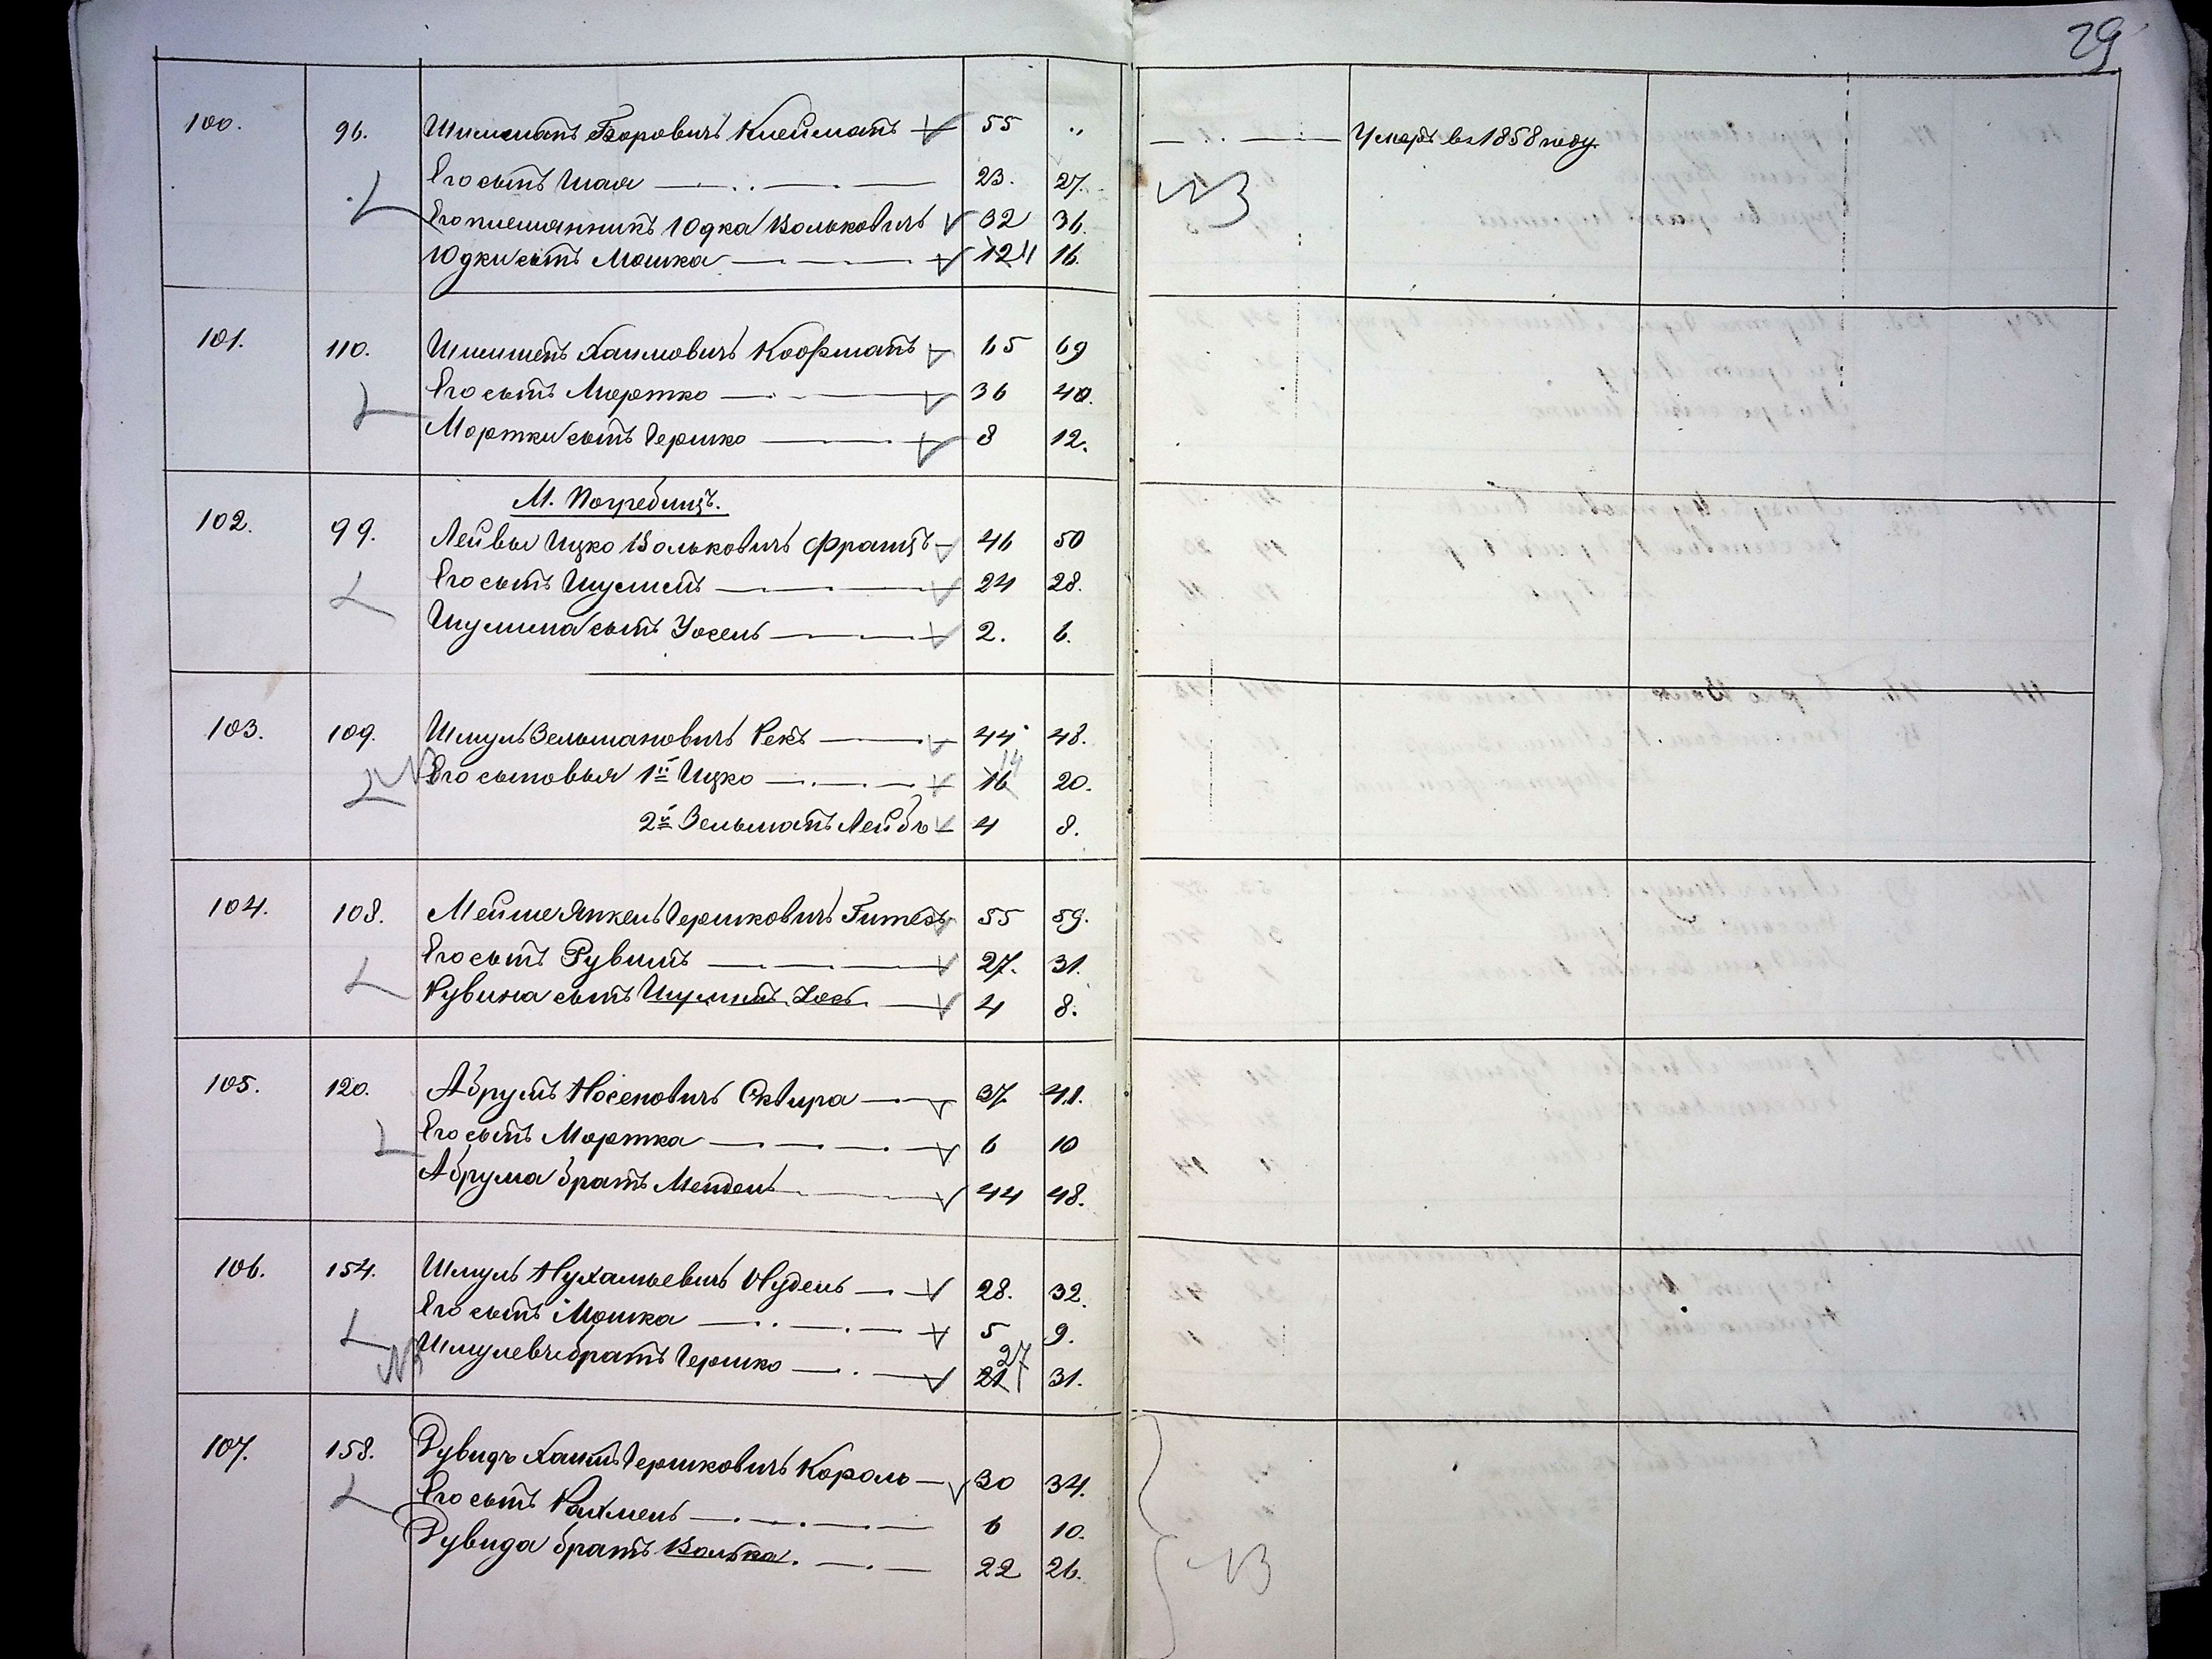 29
100. 96. Шимшанъ Беровичъ Клейманъ 55 "
Умеръ въ 1858 году.
Его сынъ Шая 23. 27.
NB
Его племянникъ Юдка Вольковичъ 32 36.
Юдки сынъ Мошка 12 11 16.
101. 110. Шимшенъ Хаимовичъ Кофманъ 65 69
Его сынъ Мортко 36 40.
Мортки сынъ Гершко 8 12.
М. Погребищъ.
102. 99. Лейвы Ицко Вольковичъ Францъ 46 50
Его сынъ Шулимъ 24 28.
Шулима сынъ Уосель 2. 6.
103. 109. Шмуль Зельмановичъ Рекъ 44 48.
Его сыновья 1й Ицко 16 14 20.
2й Зельманъ Лейбъ 4 8.
104. 108. Мейше Янкель Гершковичъ 55 59.
Его сынъ Рувинъ 27. 31.
Рувина сынъ Шулимъ Іось 4 8.
105. 120. Абрумъ Носеновичъ Сквира 37 41.
Его сынъ Мортка 6 10
Абрума братъ Мендель 44 48.
106. 154. Шмуль Нухимьевичъ Нудель 28. 32.
Его сынъ Мошка 5 9.
Шмулевъ братъ Гершко 21 27 31.
107. 158. Дувидъ Хаимъ Гершковичъ Король 30 34.
Его сынъ Рахмель 6 10.
Дувида братъ Волька. 22 26.
NB